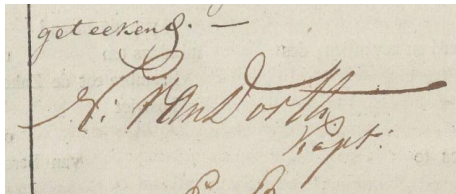 geteekend. —
N: VanDorth
Kapt: